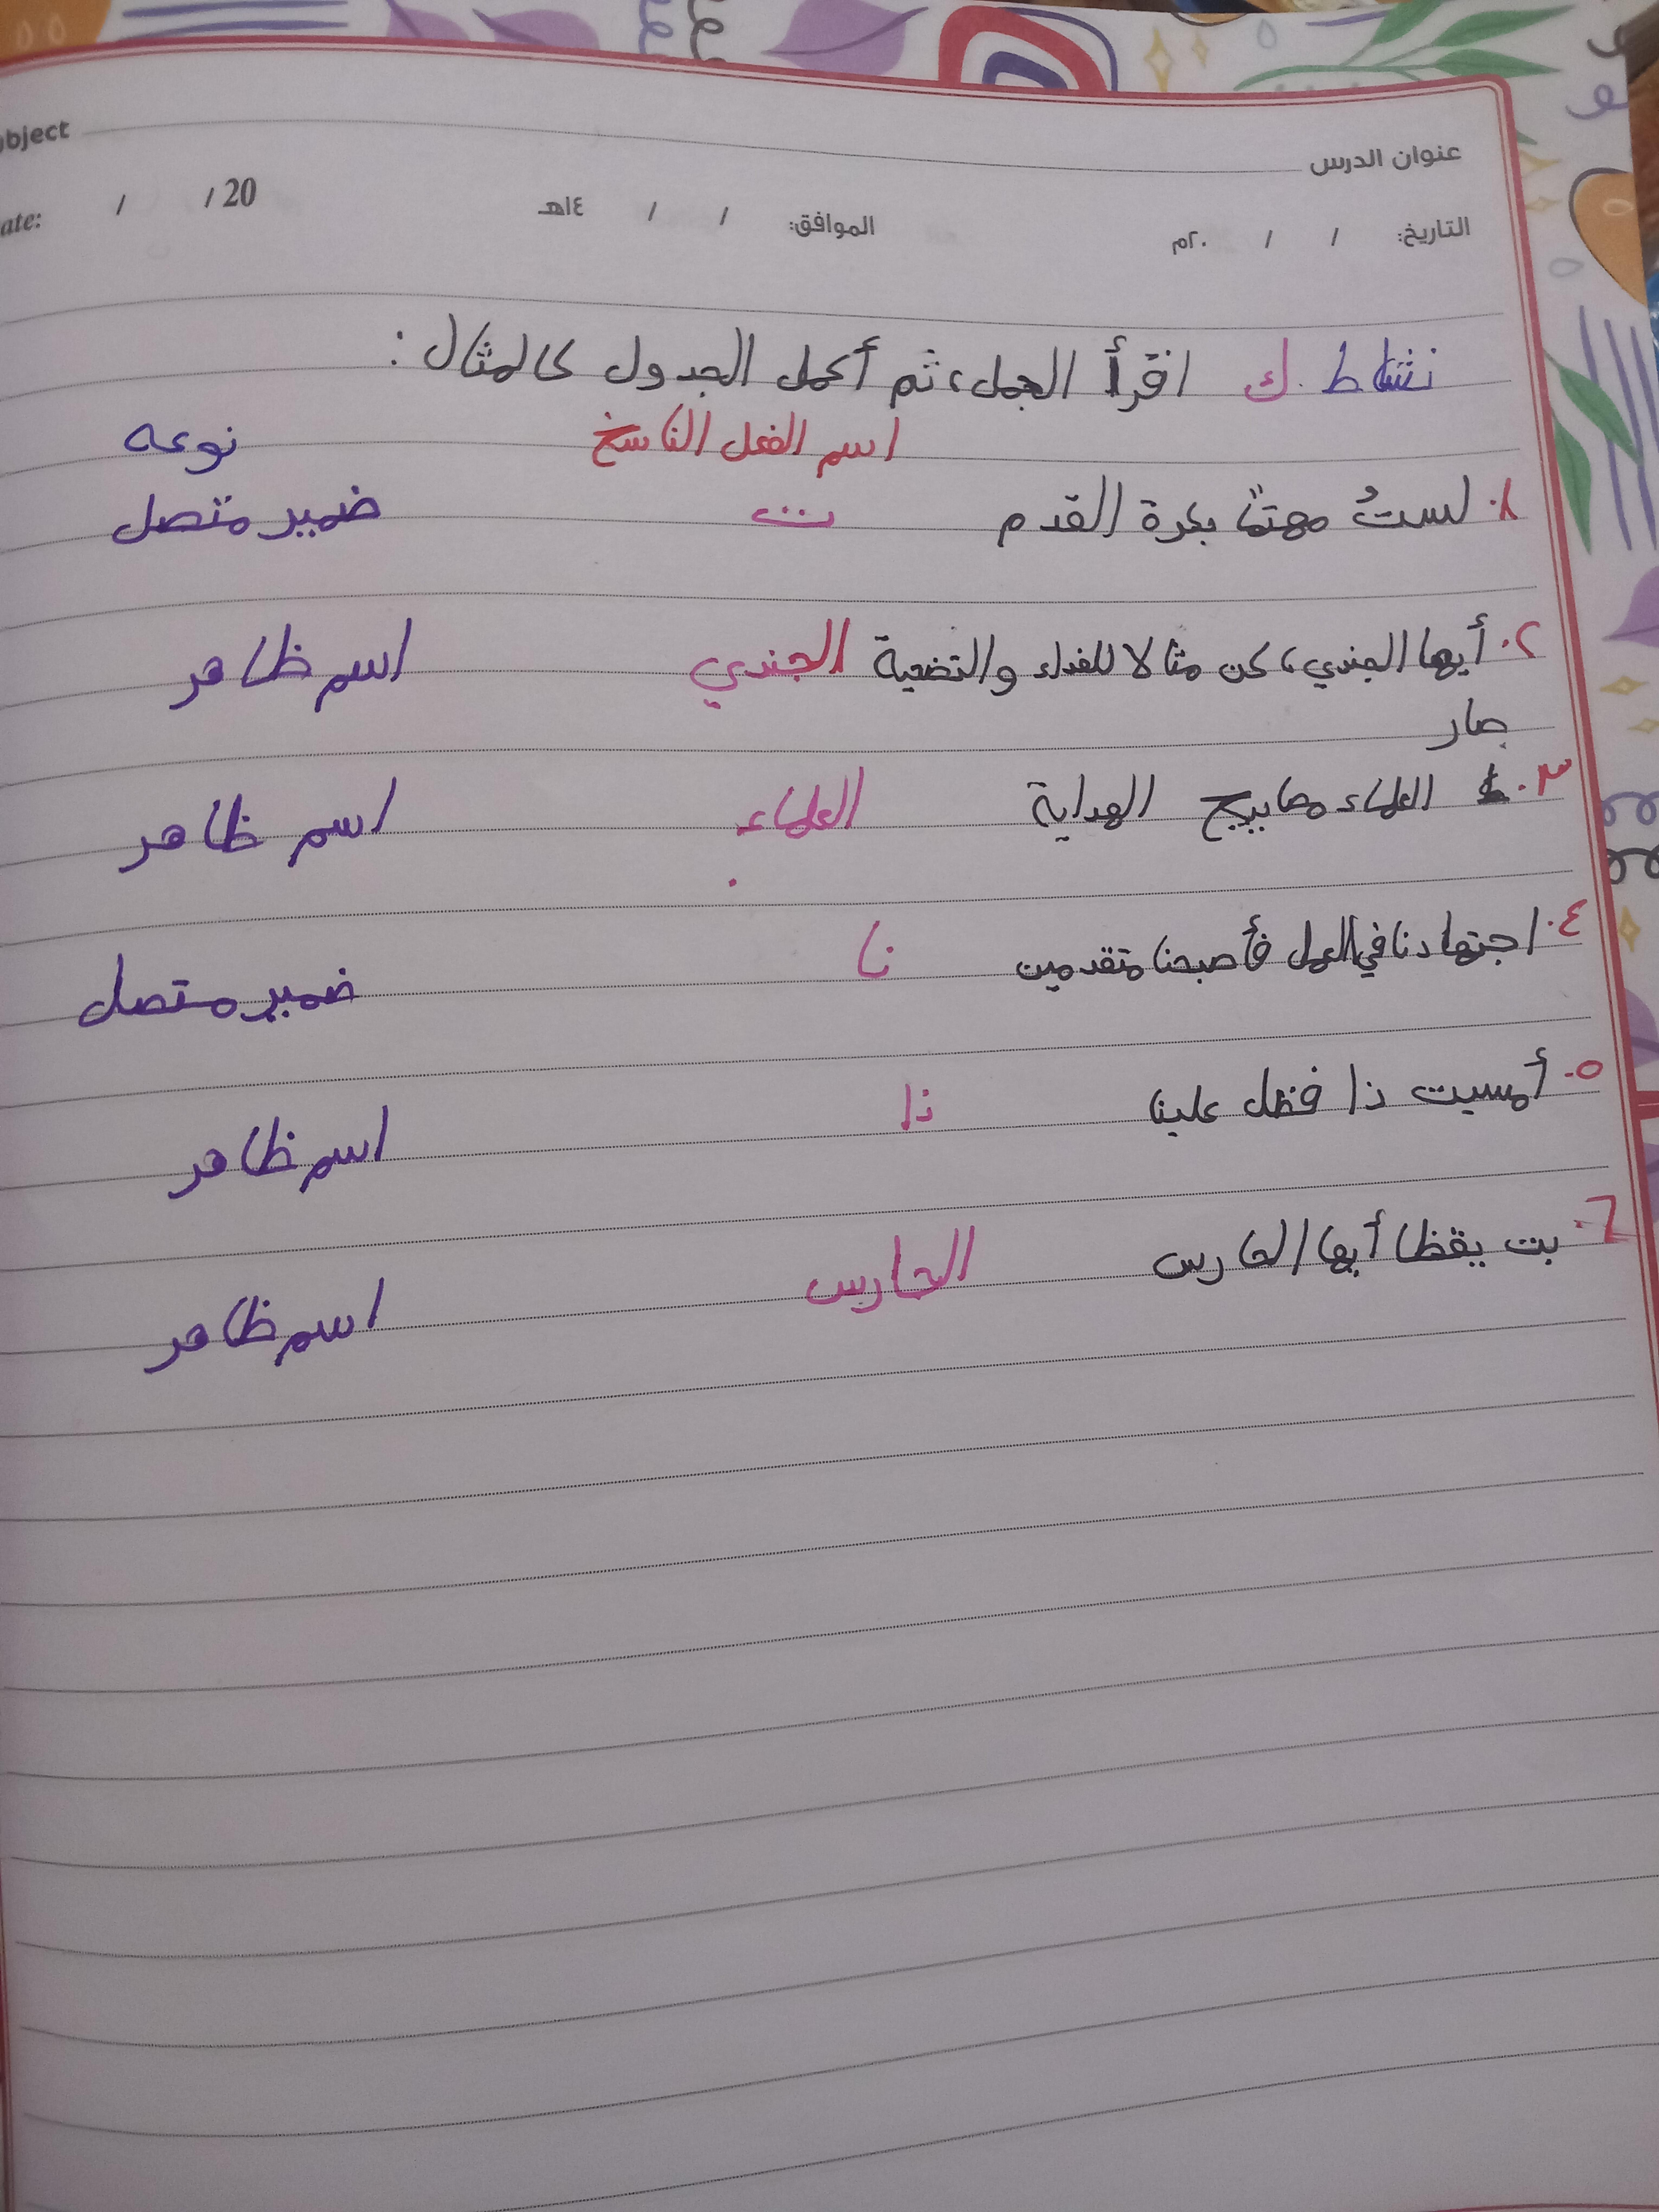 عنوان الدرس
bject
التاريخ: / / ٢٠م الموافق: / / ١٤هـ
ate: / / 20
نشاط ك اقرأ الجمل، ثم أكمل الجدول كالمثال:
اسم الفعل الناسخ نوعه
١. لستُ مهتمًا بكرة القدم ت ضمير متصل
٢. أيها الجندي، كن مثالا للفداء والتضحية الجندي اسم ظاهر
صار
٣. العلماء مصابيح الهداية العلماء اسم ظاهر
٤. اجتهادنا في العمل فأصبحنا متقدمين نا ضمير متصل
٥. أمسيت ذا فضل علينا ذا اسم ظاهر
٦. بت يقظا أيها الحارس الحارس اسم ظاهر